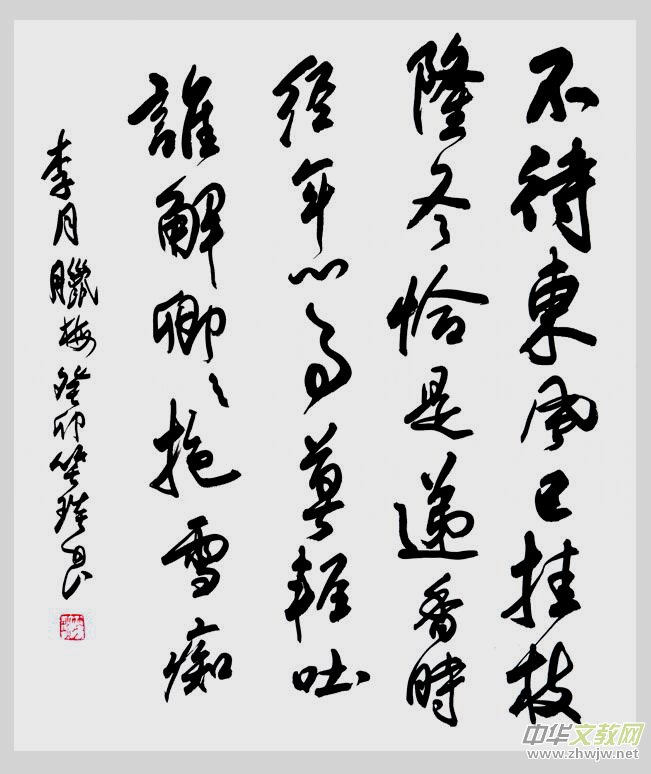 不待東風已挂枝
隆冬恰是递香時
经年心事莫輕吐
誰解卿々抱雪痴
李月臘梅癸卯
中华文教网
www.zhwjw.net